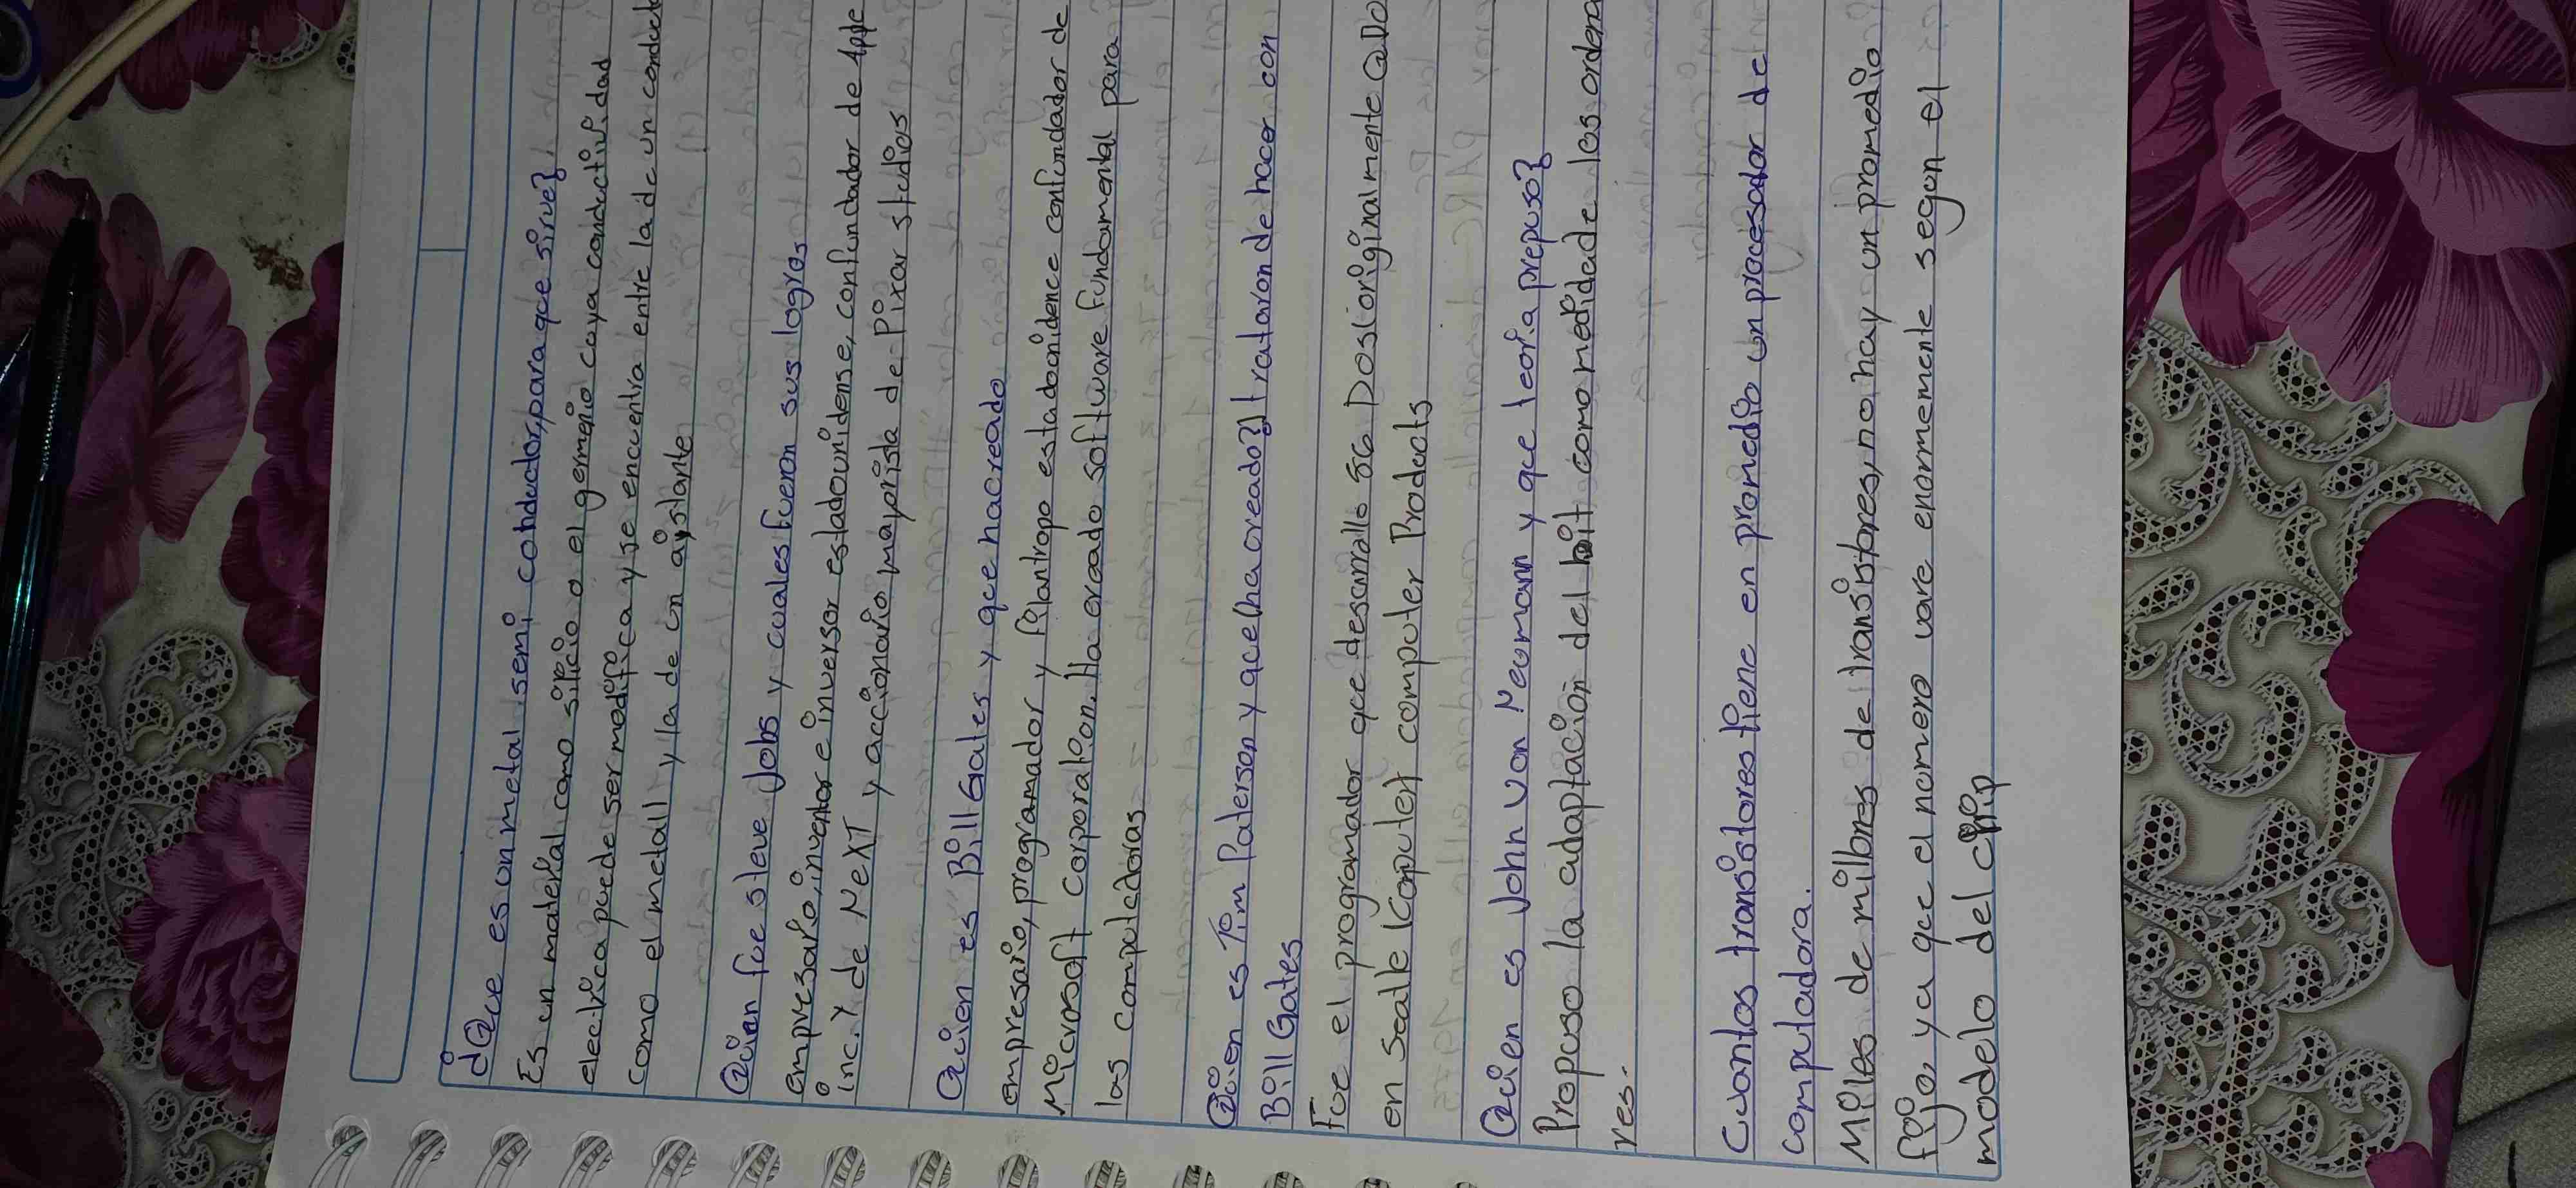 ¿Que es un metal semi conductor, para que sirve?
Es un material como silicio o el germanio cuya conductividad
electrica puede ser modifica y se encuentra entre la de un conduct
como el metall y la de un ayslante
Quian fue steve Jobs y cuales fueron sus logros
empresario, inventor e inversor estadounidense, confundador de Apple
inc. Y de NeXT y accionario mayorista de Pixar studios
Quien es Bill Gates y que ha creado
empresario, programador y filantropo estadoonidence confundador de
Microsoft corporation. Ha creado software fundamental para
las computadoras
Quien es Tim Paterson y que (ha creado?) trataron de hacer con
Bill Gates
Fue el programador que desarrallo 86 Dos (originalmente QDO
en Seatle (Computer) computer Products
Quien es John von Neumann y que teoria prepuso?
Propuso la adaptación del bit como medida de las ordena
res.
Cuantos transistores tiene en promedio un procesador de
computadora.
Miles de millones de transistores, no hay un promedio
fijo, ya que el numero vare enormemente segun el
modelo del chip